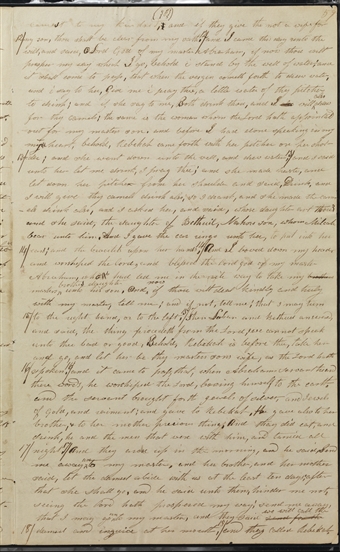 (59)
unto my kindred, and if they give thee not a wife for
my son, then shalt be clear from my oath; And I came this day unto the
well, and said, O Lord God of my master Abraham, if now thou wilt
prosper my way which I go, behold i stand by the well of water; and
it shall come to pass, that when the virgin cometh forth to draw water,
and i say to her, Give me i pray thee, a little water of thy pitcher
to drink; and if she say to me, Both drink thou, and I will draw
for thy camels; the same is the woman whom the Lord hath appointed
out for my master son. and before I had done speaking in my
heart, behold, Rebekah came forth with her pitcher on her shoul
der; and she went down unto the well, and drew water; and I said
unto her let me drink, I pray thee; and she made haste, and
let down her pitcher from her shoulder and said, Drink, and
I will give thy camels drink also, so I drank, and she made the camels
drink also, and i asked her, and said, whose daughter art thou
and she said, the daughter of Bethuel, Nahors son, whom Milcah
bare unto him. And I gave the ear rings unto her, to put into her
ears; and the bracelets upon her hands; And I bowed down my head,
and worshiped the Lord, and blessed the Lord God of my master
Abraham, who had led me in the right way to take my
masters brothers daughter unto his son, And, if thou will deal kindly and truly
with my master, tell me; and if not, tell me; that i may turn
to the right hand, or to the left; Then Laban and Bethuel answered
and said, the thing proceedeth from the Lord; we cannot speak
unto thee bad or good, Behold, Rebekah is before thee, take her
and go, and let her be thy master sons wife, as the Lord hath
spoken; And it came to pass that, when Abrahams servant heard
these words, he worshiped the Lord, bowing himself to the earth
and the servant brought forth jewels of silver, and jewels
of gold, and raiment, and gave to Rebekah, He gave also to her
brother, & to her mother precious things, And they did eat and
drink, he and the men that were with him, and tarried all
night; And they rose up in the morning, and he said send
me away unto my master, and her brother, and her mother
said, let the damsel abide with us at the least ten days; after
that she shall go, and he said unto them, hinder me not,
seeing the Lord hath prospered my way; send me away
that I may go to my master, and they said we will call the
damsel and enquire at her mouth; And they called Rebekah